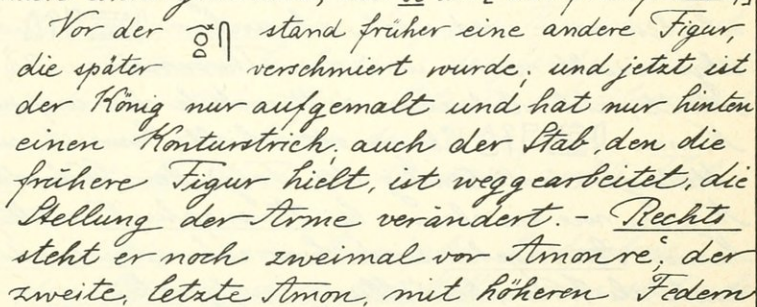 Vor der stand früher eine andere Figur,
die später verschmiert wurde; und jetzt ist
der König nur aufgemalt und hat nur hinten
einen Konturstrich, auch der Stab, den die
frühere Figur hielt, ist weggearbeitet, die
Stellung der Arme verändert. – Rechts
steht er noch zweimal vor Amonreʿ; der
zweite, letzte Amon, mit höheren Federn